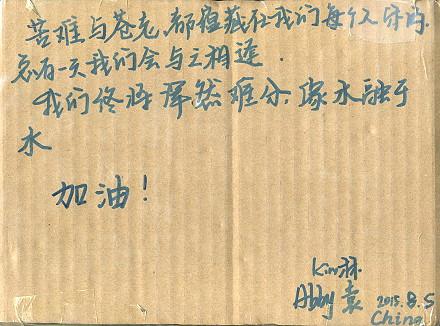 苦难与苍老,都蕴藏在我们每个人体内.
总有一天我们会与之相逢
我们终将浑然难分,像水融于
水
加油!
Kiw林
Abby 袁 2015.8.5
China